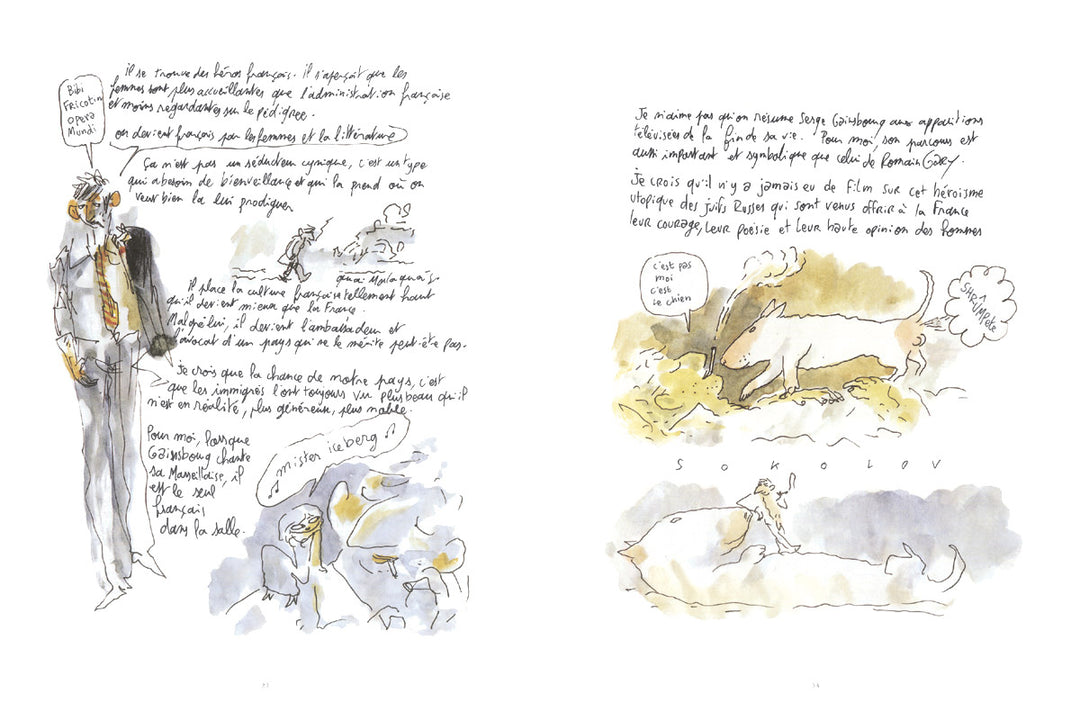 Bibi
Fricotin
opera
Mundi
il se trouve des héros français. il s'aperçoit que les
femmes sont plus accueillantes que l'administration française
et moins regardantes sur le pédigree.
on devient français par les femmes et la littérature
Ça n'est pas un séducteur cynique, c'est un type
qui a besoin de bienveillance et qui la prend où on
veut bien la lui prodiguer
quai Malaquais
il place la culture française tellement haut
qu'il devient mieux que la France.
Malgré lui, il devient l'ambassadeur et
l'avocat d'un pays qui ne le mérite peut-être pas.
Je crois que la chance de notre pays, c'est
que les immigrés l'ont toujours vu plus beau qu'il
n'est en réalité, plus généreux, plus noble.
Pour moi, lorsque
Gainsbourg chante
sa Marseillaise, il
est le seul
français
dans la salle.
mister iceberg
Je n'aime pas qu'on résume Serge Gainsbourg aux apparitions
télévisées de la fin de sa vie. Pour moi, son parcours est
aussi important et symbolique que celui de Romain Gary.
Je crois qu'il n'y a jamais eu de Film sur cet héroïsme
utopique des juifs Russes qui sont venus offrir à la France
leur courage, leur poésie et leur haute opinion des hommes
c'est pas
moi
c'est
le chien
SHRUMPète
SOKOLOV